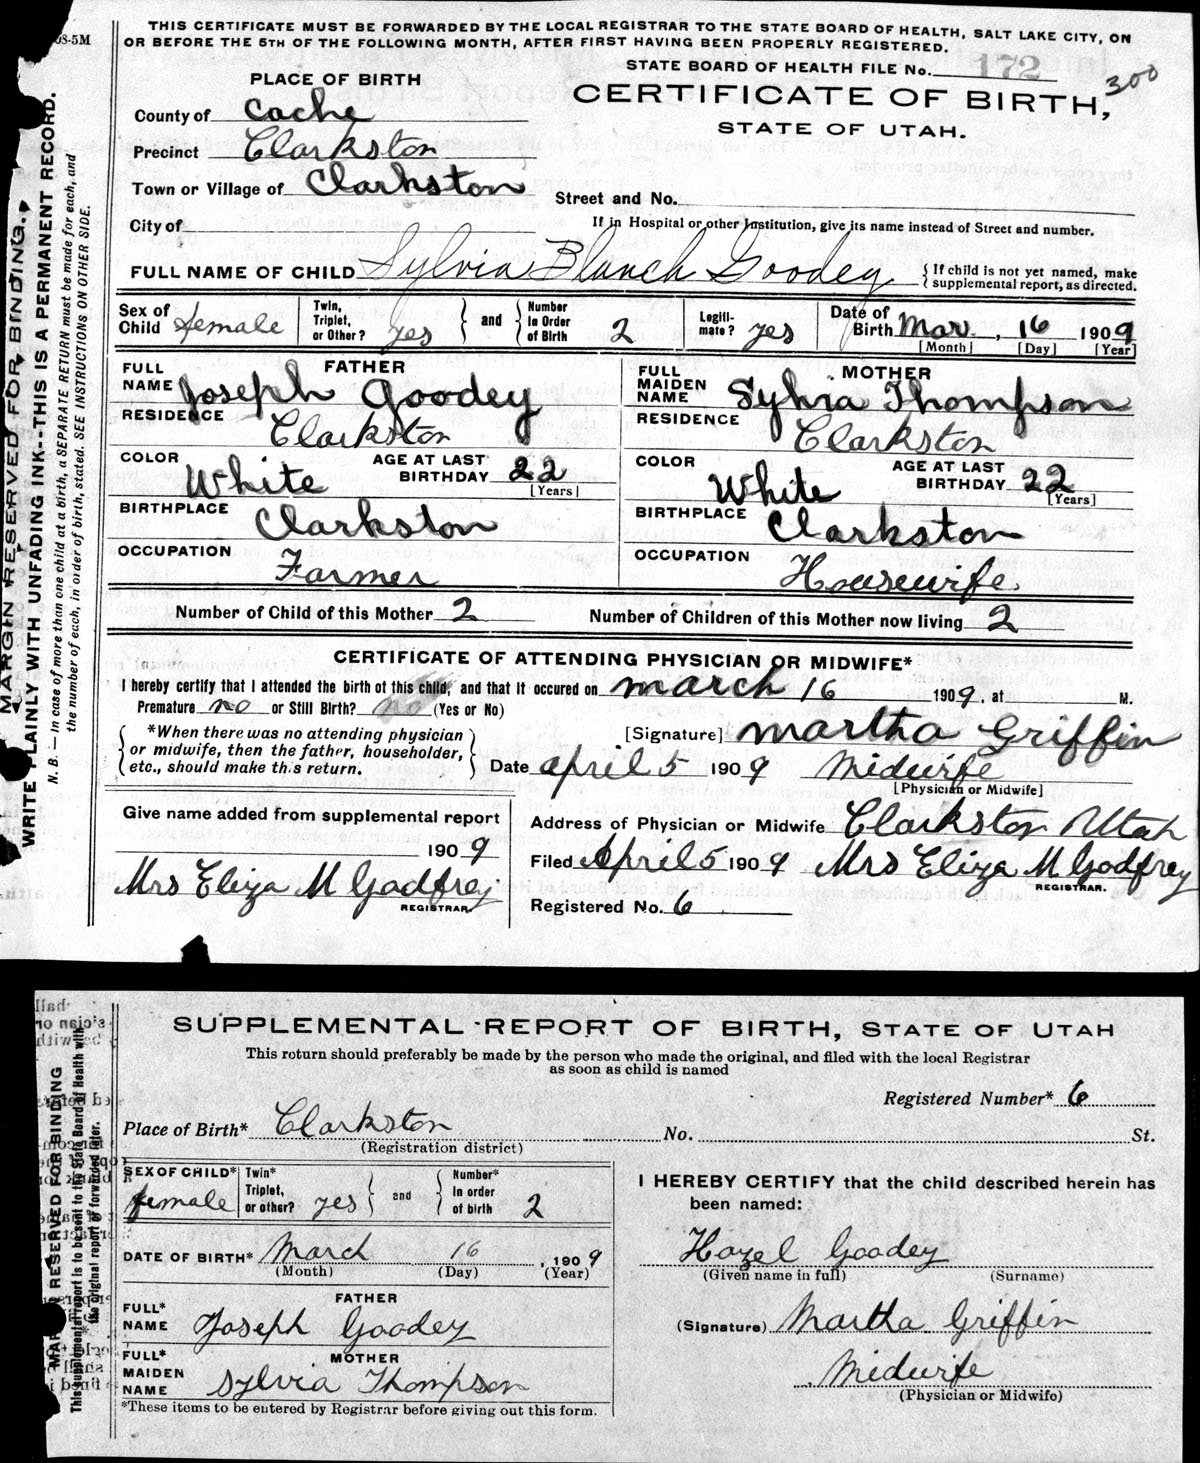 THIS CERTIFICATE MUST BE FORWARDED BY THE LOCAL REGISTRAR TO THE STATE BOARD OF HEALTH, SALT LAKE CITY, ON
OR BEFORE THE 5TH OF THE FOLLOWING MONTH, AFTER FIRST HAVING BEEN PROPERLY REGISTERED.
08-5M
STATE BOARD OF HEALTH FILE No. 172
300
PLACE OF BIRTH
CERTIFICATE OF BIRTH,
STATE OF UTAH.
County of Cache
Precinct Clarkston
Town or Village of Clarkston
Street and No.
City of
If in Hospital or other Institution, give its name instead of Street and number.
FULL NAME OF CHILD Sylvia Blanch Goodey
If child is not yet named, make
supplemental report, as directed.
Sex of Child female
Twin, Triplet, or Other? yes
and
Number In Order of Birth 2
Legitimate? yes
Date of Birth Mar. 16 1909
[Month] [Day] [Year]
FATHER
FULL NAME Joseph Goodey
RESIDENCE Clarkston
COLOR White
AGE AT LAST BIRTHDAY 22
[Years]
BIRTHPLACE Clarkston
OCCUPATION Farmer
MOTHER
FULL MAIDEN NAME Sylvia Thompson
RESIDENCE Clarkston
COLOR White
AGE AT LAST BIRTHDAY 22
[Years]
BIRTHPLACE Clarkston
OCCUPATION Housewife
Number of Child of this Mother 2
Number of Children of this Mother now living 2
CERTIFICATE OF ATTENDING PHYSICIAN OR MIDWIFE*
I hereby certify that I attended the birth of this child, and that it occured on march 16 1909, at M.
Premature no or Still Birth? no (Yes or No)
*When there was no attending physician
or midwife, then the father, householder,
etc., should make this return.
[Signature] Martha Griffin
Date april 5 1909 Midwife
[Physician or Midwife]
Give name added from supplemental report
1909
Mrs Eliza M Godfrey
REGISTRAR.
Address of Physician or Midwife Clarkston Utah
Filed April 5 1909 Mrs Eliza M Godfrey
REGISTRAR.
Registered No. 6
MARGIN RESERVED FOR BINDING.
WRITE PLAINLY WITH UNFADING INK--THIS IS A PERMANENT RECORD.
N. B. — In case of more than one child at a birth, a SEPARATE RETURN must be made for each, and
the number of each, in order of birth, stated. SEE INSTRUCTIONS ON OTHER SIDE.
SUPPLEMENTAL REPORT OF BIRTH, STATE OF UTAH
This return should preferably be made by the person who made the original, and filed with the local Registrar
as soon as child is named
Registered Number* 6
Place of Birth* Clarkston No. St.
(Registration district)
SEX OF CHILD* female
Twin* Triplet, or other? yes
and
Number* In order of birth 2
DATE OF BIRTH* March 16, 1909
(Month) (Day) (Year)
FATHER
FULL* NAME Joseph Goodey
MOTHER
FULL* MAIDEN NAME Sylvia Thompson
*These items to be entered by Registrar before giving out this form.
I HEREBY CERTIFY that the child described herein has
been named:
Hazel Goodey
(Given name in full) (Surname)
(Signature) Martha Griffin
Midwife
(Physician or Midwife)
RESERVED FOR BINDING
This supplemental report is to be sent to the State Board of Health with
the original report or forwarded later.